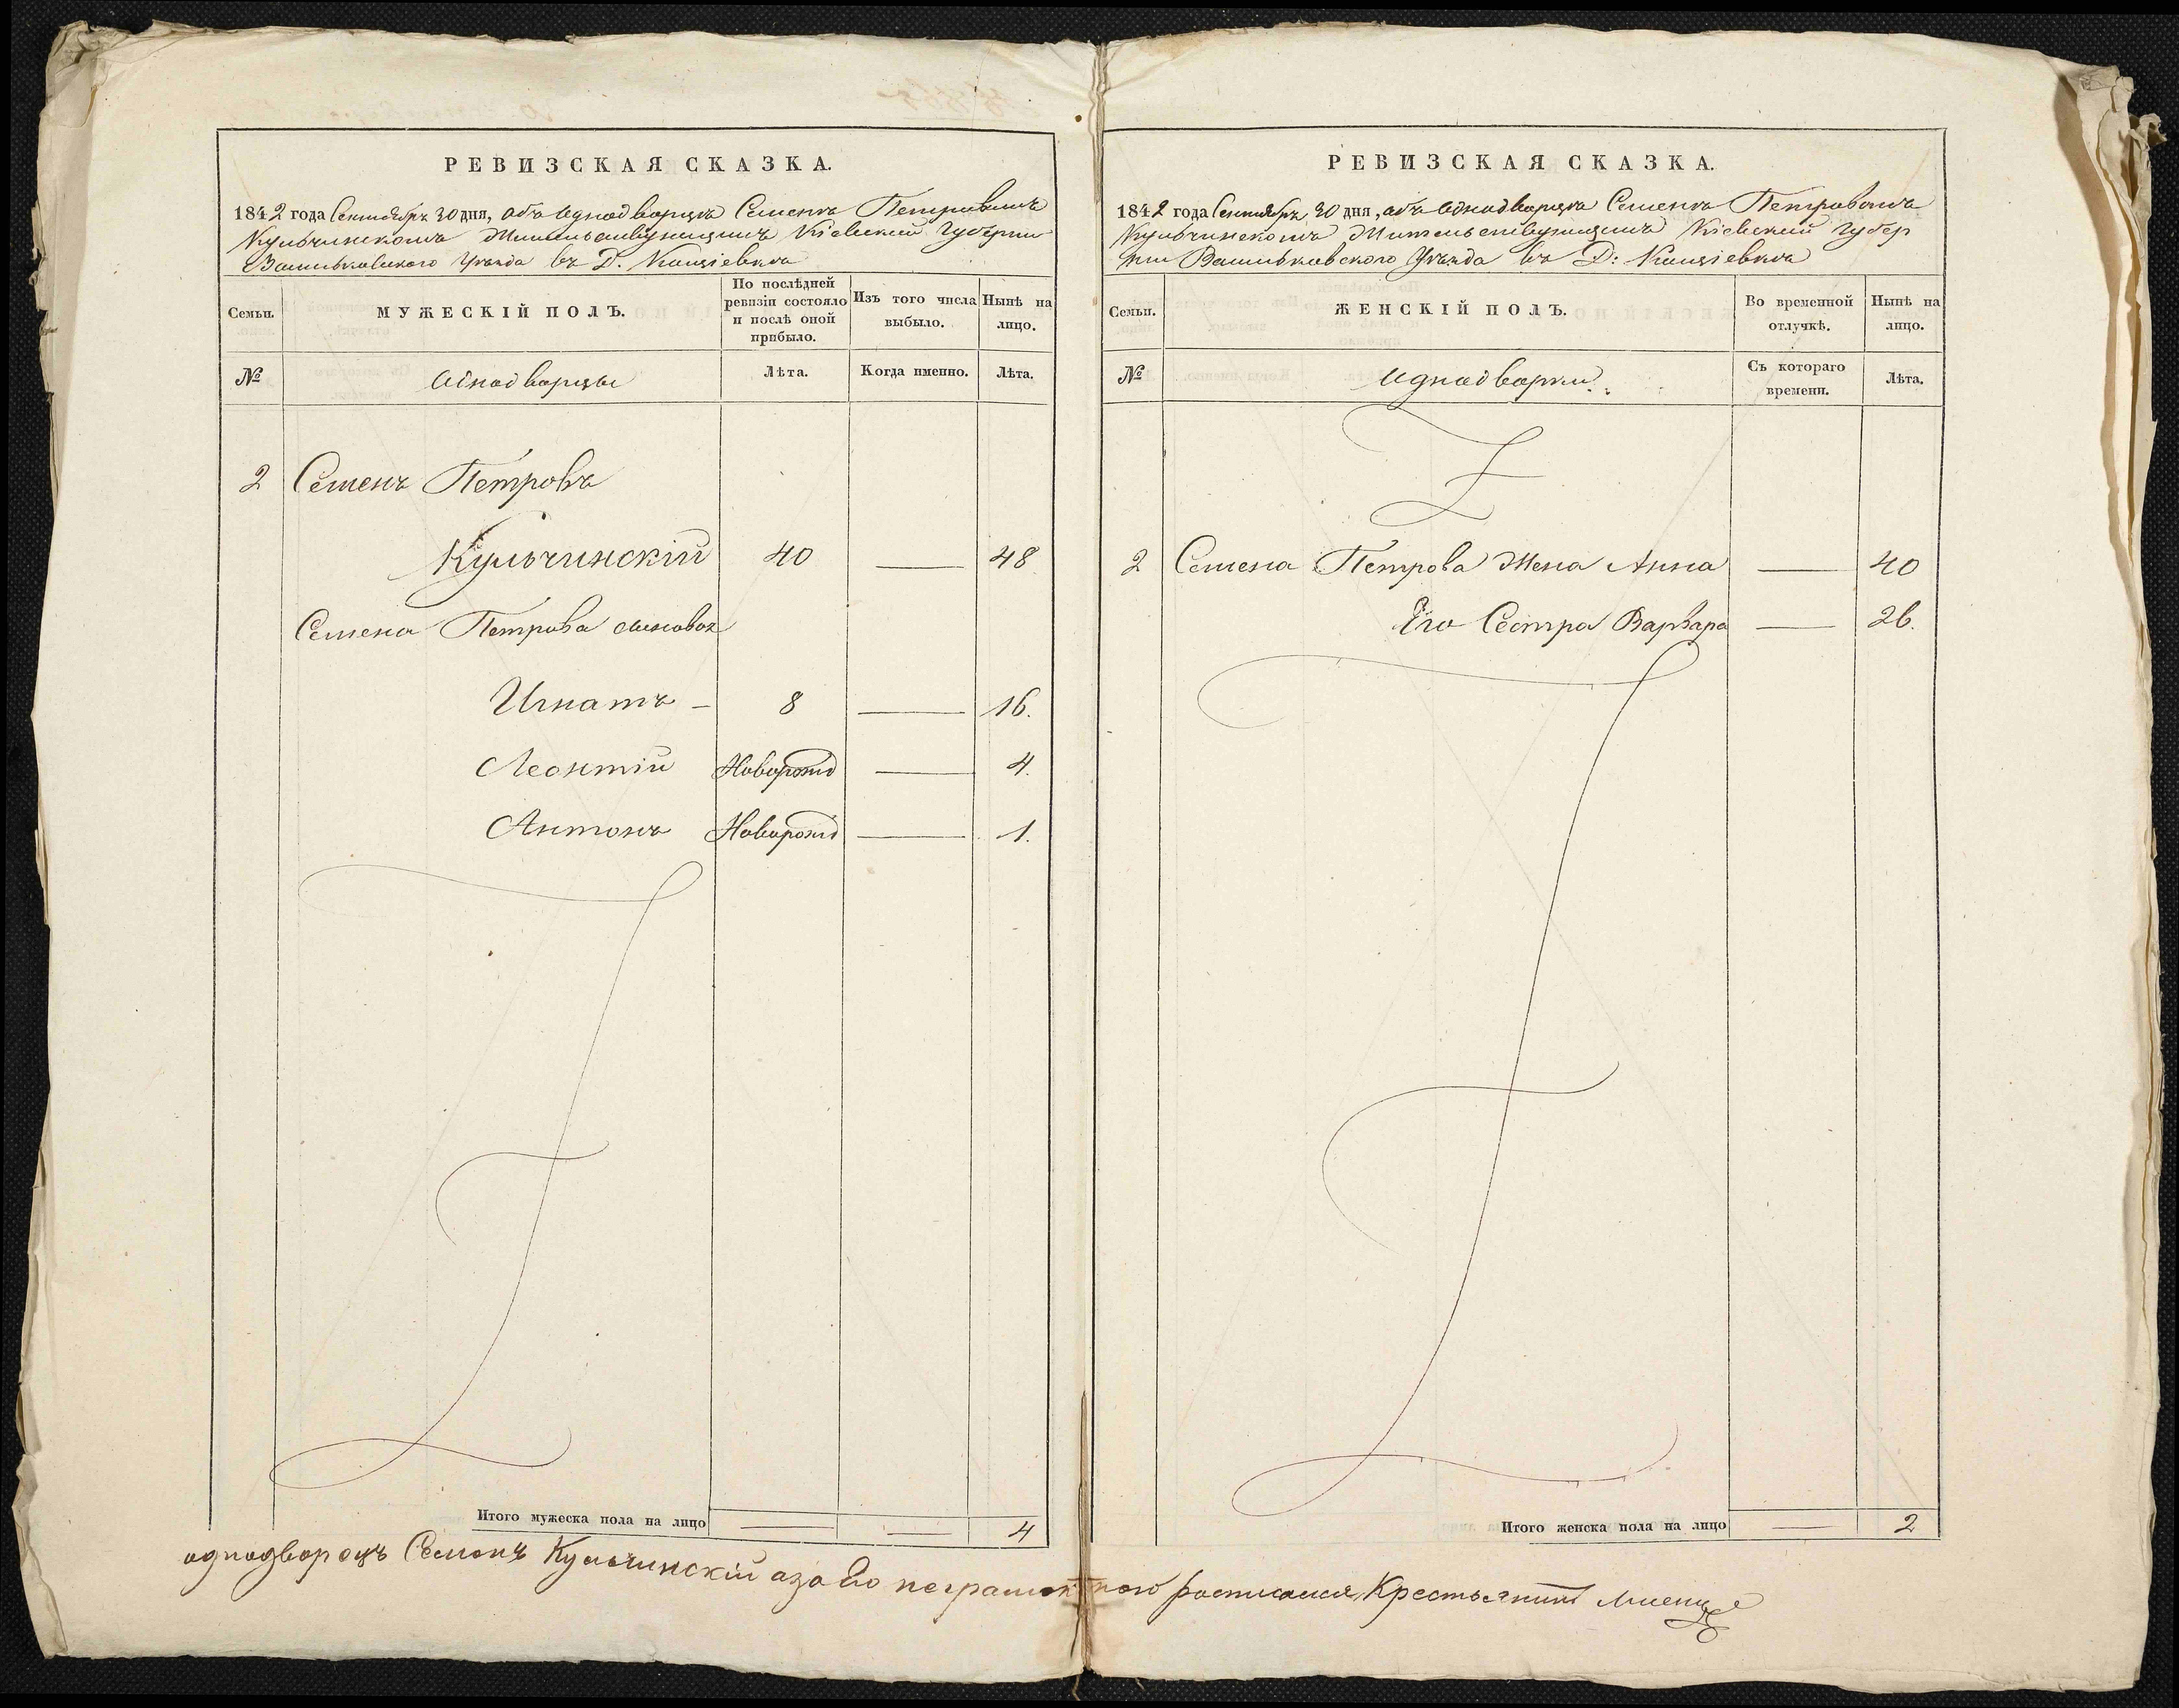 РЕВИЗСКАЯ СКАЗКА.
1842 года Сентября 30 дня, объ Однодворцѣ Семенѣ Петровомъ
Кульчинскомъ Жительствующимъ Кіевской Губерніи
Васильковского Уѣзда въ Д.
Семьи.
МУЖЕСКІЙ ПОЛЪ.
По послѣдней ревизіи состояло и послѣ оной прибыло.
Изъ того числа выбыло.
Нынѣ на лицо.
№
Однодворцы
Лѣта.
Когда именно.
Лѣта.
2 Семенъ Петровъ
Кульчинскій 40 — 48
Семена Петрова сыновья
Игнатъ – 8 — 16.
Леонтій Новорожд — 4.
Антонъ Новорожд — 1.
Итого мужеска пола на лицо — — 4
РЕВИЗСКАЯ СКАЗКА.
1842 года Сентября 30 дня, объ Однодворцѣ Семенѣ Петровомъ
Кульчинскомъ Жительствующимъ Кіевской Губер
ніи Васильковского Уѣзда въ Д:
Семьи.
ЖЕНСКІЙ ПОЛЪ.
Во временной отлучкѣ.
Нынѣ на лицо.
№
Однодворки
Съ котораго времени.
Лѣта.
2 Семена Петрова Жена Анна — 40
Его Сестра Варвара — 26.
Итого женска пола на лицо — 2
однодворецъ Семенъ Кульчинскій азаего неграмотного росписался Крестьянинъ